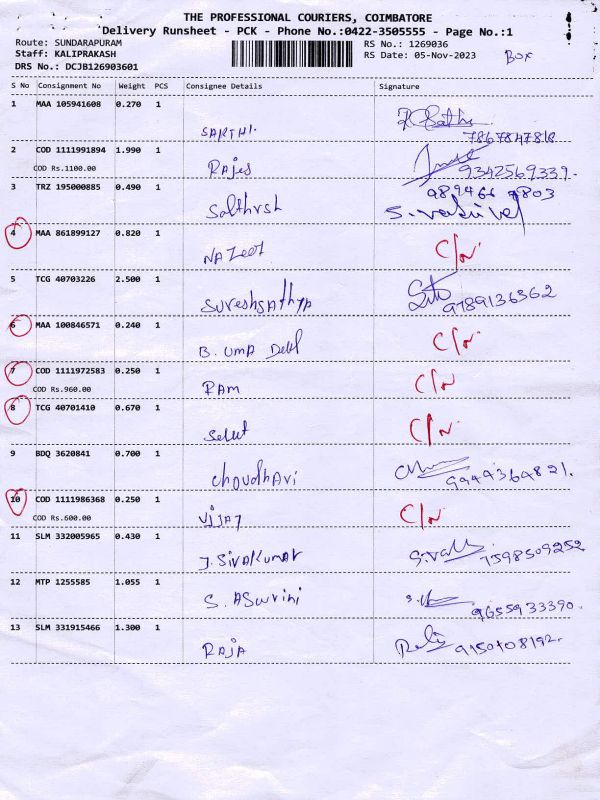 THE PROFESSIONAL COURIERS, COIMBATORE
Delivery Runsheet - PCK - Phone No.:0422-3505555 - Page No.:1
Route: SUNDARAPURAM RS No.: 1269036
Staff: KALIPRAKASH RS Date: 05-Nov-2023 BOX
DRS No.: DCJB126903601
S No Consignment No Weight PCS Consignee Details Signature
1 MAA 105941608 0.270 1
SARTHI.
7867847818
2 COD 1111991894 1.990 1
COD Rs.1100.00 Rajes 9342569339.
3 TRZ 195000885 0.490 1
Salthrsh
4 MAA 861899127 0.820 1
Nazeer C/N
5 TCG 40703226 2.500 1
Sureshsathya 9789136362
6 MAA 100846571 0.240 1
B. UMA Devi C/N
7 COD 1111972583 0.250 1
COD Rs.960.00 RAM C/N
8 TCG 40701410 0.670 1
C/N
9 BDQ 3620841 0.700 1
Choudhari 9444364821.
10 COD 1111986368 0.250 1
COD Rs.600.00 Vijay C/N
11 SLM 332005965 0.430 1
J. Sivakumar 7598509252
12 MTP 1255585 1.055 1
S. ASwrini 9655933390.
13 SLM 331915466 1.300 1
RAJA 9150108192.